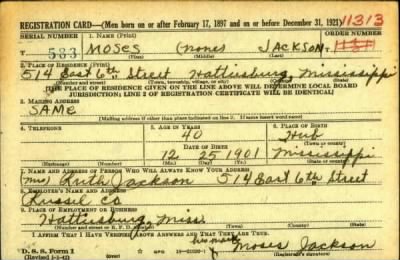 REGISTRATION CARD—(Men born on or after February 17, 1897 and on or before December 31, 1921) 11313
SERIAL NUMBER 1. NAME (Print) ORDER NUMBER
533 MOSES (None) JACKSON
(First) (Middle) (Last)
2. PLACE OF RESIDENCE (Print)
514 East 6th Street Hattiesburg, Mississippi
(Number and street) (Town, township, village, or city) (County) (State)
[THE PLACE OF RESIDENCE GIVEN ON THE LINE ABOVE WILL DETERMINE LOCAL BOARD
JURISDICTION; LINE 2 OF REGISTRATION CERTIFICATE WILL BE IDENTICAL]
3. MAILING ADDRESS
SAME
[Mailing address if other than place indicated on line 2. If same insert word same]
4. TELEPHONE 5. AGE IN YEARS 6. PLACE OF BIRTH
40 Hub
DATE OF BIRTH (Town or county)
12 25 1901 Mississippi
(Exchange) (Number) (Mo.) (Day) (Yr.) (State or country)
7. NAME AND ADDRESS OF PERSON WHO WILL ALWAYS KNOW YOUR ADDRESS
Mrs Ruth Jackson 514 East 6th Street
8. EMPLOYER'S NAME AND ADDRESS
Russel Co
9. PLACE OF EMPLOYMENT OR BUSINESS
Hattiesburg, Miss.
(Number and street or R. F. D. number) (Town) (County) (State)
I AFFIRM THAT I HAVE VERIFIED ABOVE ANSWERS AND THAT THEY ARE TRUE.
his mark
D. S. S. Form 1 Moses Jackson
(Revised 1-5-42) (Registrant's signature)